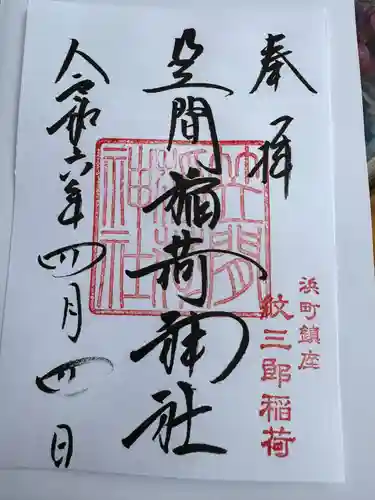 奉拝
浜町鎮座
紋三郎稲荷
笠間稲荷神社
笠間
稲荷
神社
令和六年四月四日